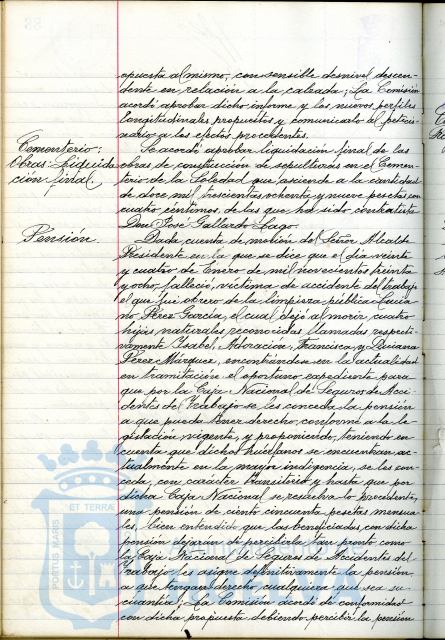 opuesta al mismo, con sensible desnivel descen-
dente en relación a la calzada; La Comisión
acordó aprobar dicho informe y los nuevos perfiles
longitudinales propuestos y comunicarlo al peticio-
nario a los efectos procedentes.
Cementerio:
Obras: Liquida-
ción final
Se acordó aprobar liquidación final de las
obras de construcción de sepulturas en el Cemen-
terio de la Soledad que asciende a la cantidad
de doce mil trescientas ochenta y nueve pesetas con
cuatro céntimos, de las que ha sido contratista
Don José Gallardo Lago.
Pensión.
Dada cuenta de moción del Señor Alcalde
Presidente en la que se dice que el día veinte
y cuatro de Enero de mil novecientos treinta
y ocho, falleció, víctima de accidente del trabajo
el que fué obrero de la limpieza pública Lucia-
no Pérez García, el cual dejó al morir cuatro
hijas naturales reconocidas llamadas respecti-
vamente Isabel, Adoración, Francisca, y Luciana
Pérez Márquez, encontrándose en la actualidad
en tramitación el oportuno expediente para
que por la Caja Nacional de Seguros de Acci-
dentes del Trabajo se les conceda la pensión
a que pueda tener derecho, conforme a la le-
gislación vigente, y proponiendo, teniendo en
cuenta que dichos huérfanos se encuentran ac-
tualmente en la mayor indigencia, se les con-
ceda, con carácter transitorio y hasta que por
dicha Caja Nacional se resuelva lo procedente,
una pensión de ciento cincuenta pesetas mensua-
les, bien entendido que las beneficiadas con dicha
pensión dejarán de percibirla tan pronto como
la Caja Nacional de Seguros de Accidentes del
Trabajo les asigne definitivamente la pensión
a que tengan derecho, cualquiera que sea su
cuantía; La Comisión acordó de conformidad
con dicha propuesta debiendo percibir la pensión
PORTUS MARIS
ET TERRA